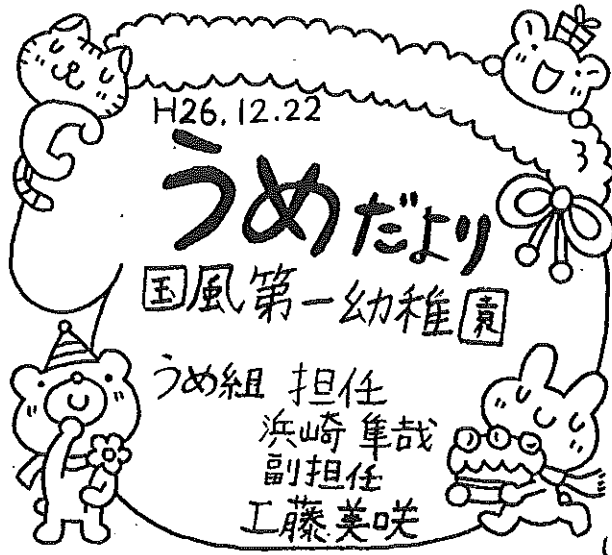 H26.12.22
うめだより
国風第一幼稚園
うめ組 担任
浜崎 隼哉
副担任
工藤美咲